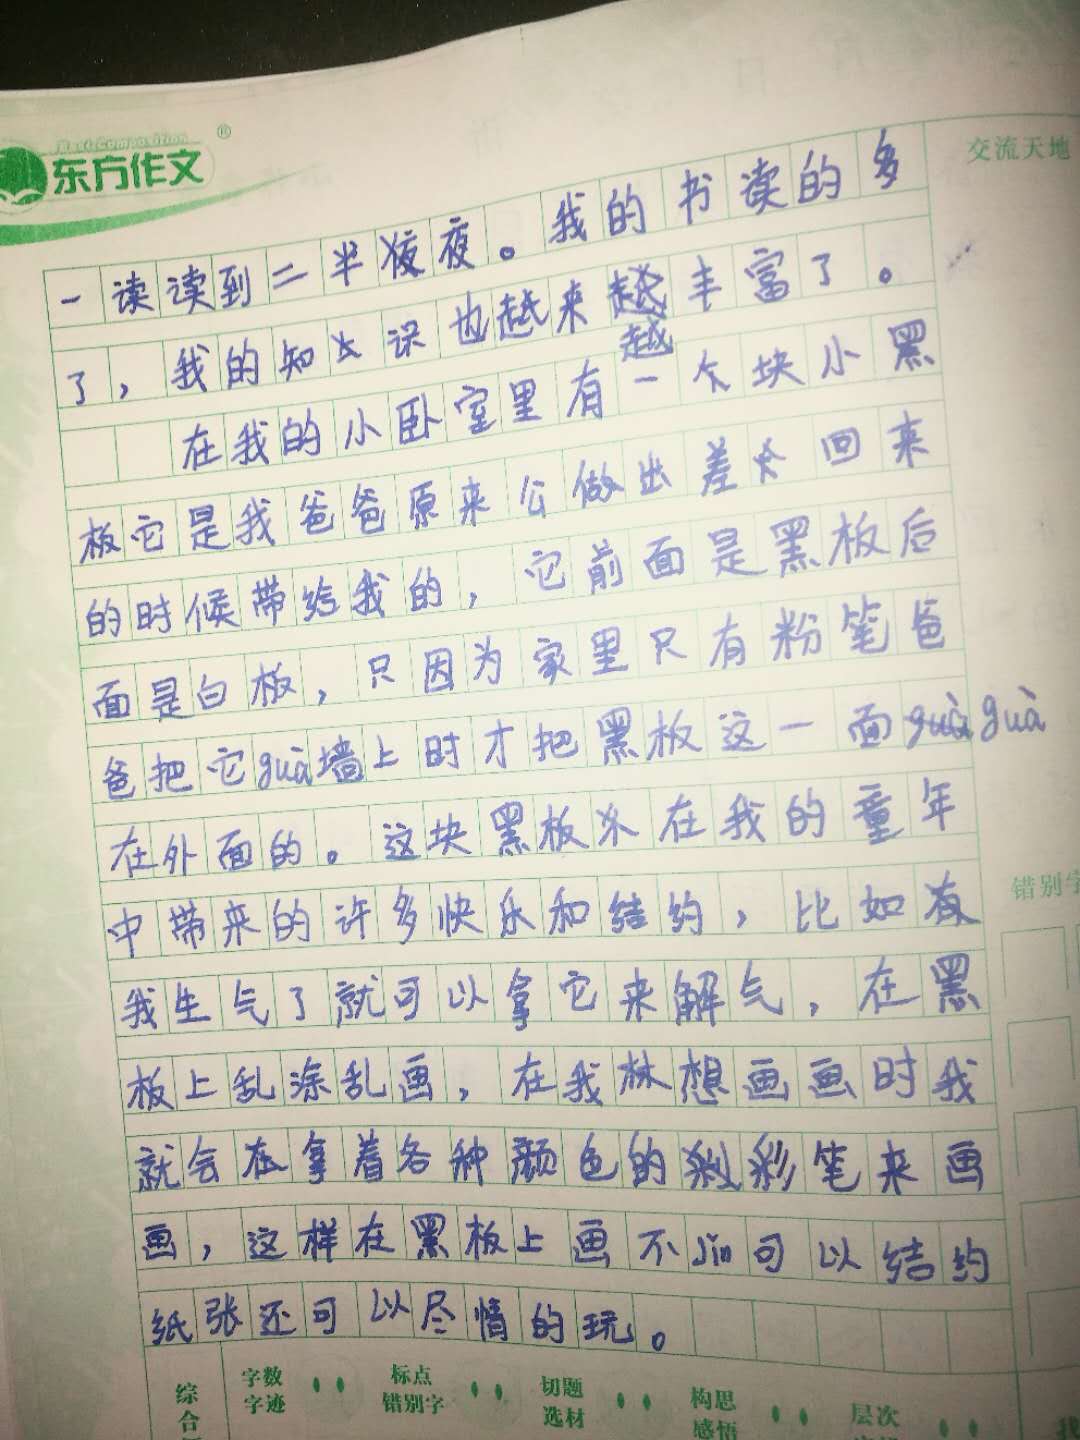 Best Composition
东方作文®
交流天地
一读读到二半夜。我的书读的多
了，我的知识也越来越丰富了。
越
在我的小卧室里有一块小黑
板它是我爸爸原来公做出差回来
的时候带给我的，它前面是黑板后
面是白板，只因为家里只有粉笔爸
爸把它guà墙上时才把黑板这一面guà guà
在外面的。这块黑板在我的童年
中带来的许多快乐和结约，比如
我生气了就可以拿它来解气，在黑
板上乱涂乱画，在我想画画时我
就会在拿着各种颜色的彩笔来画
画，这样在黑板上画不jǐn可以结约
纸张还可以尽情的玩。
错别字
综合
字数
字迹
标点
错别字
切题
选材
构思
感悟
层次